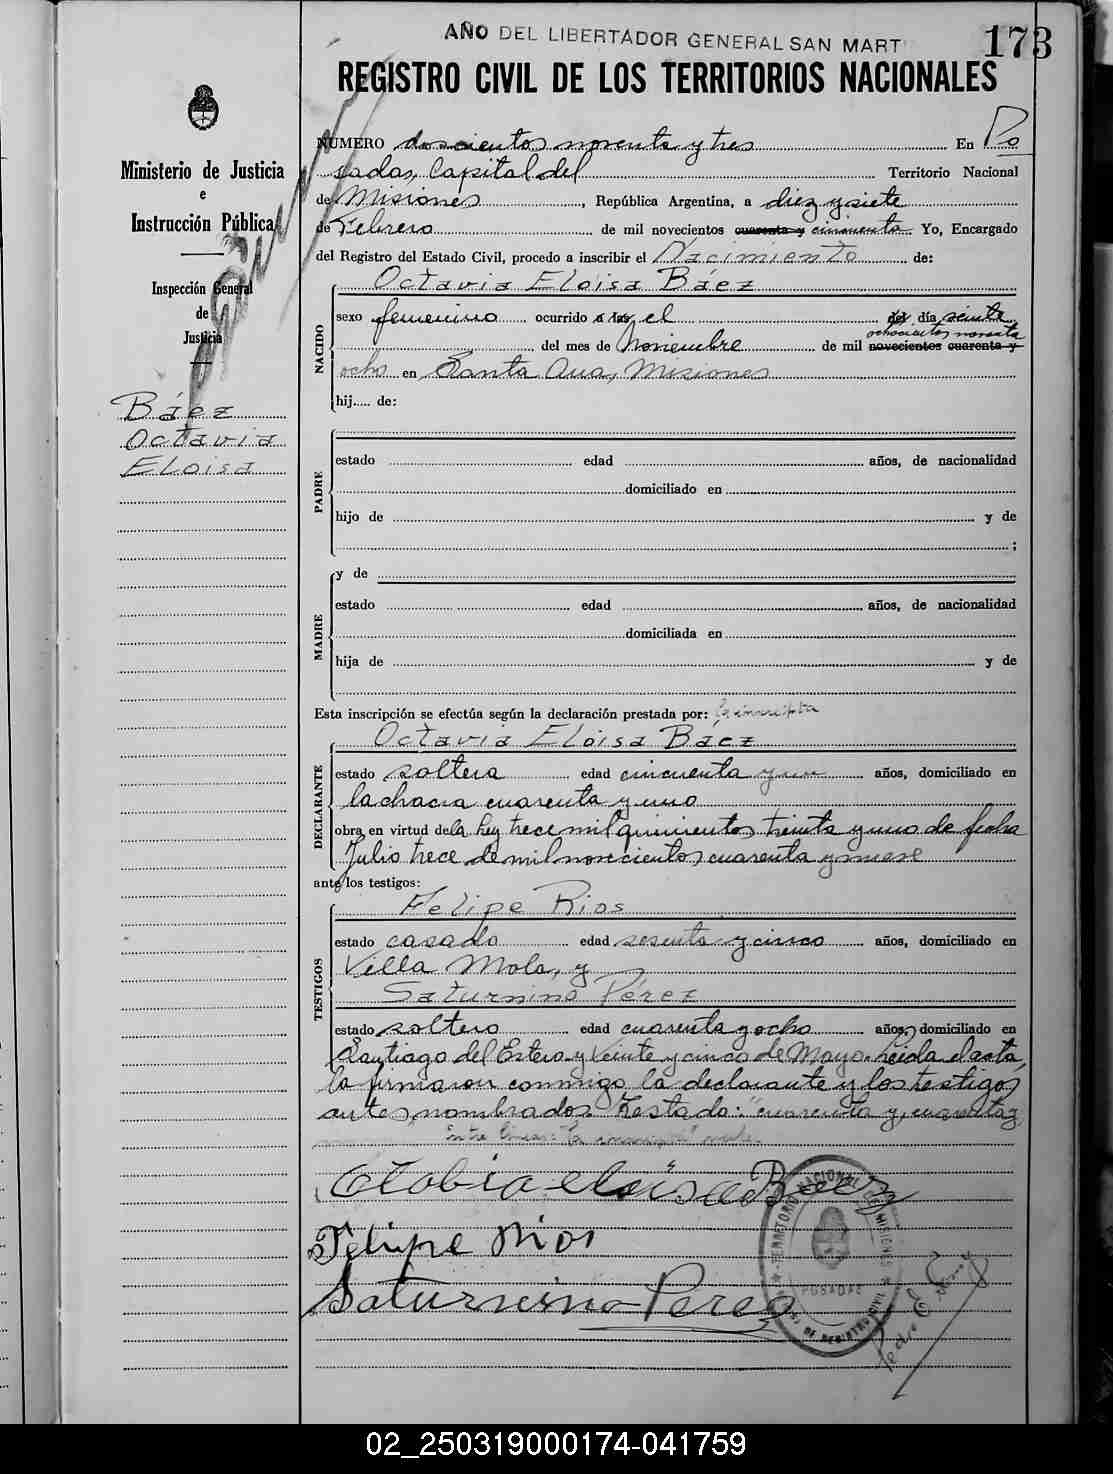 AÑO DEL LIBERTADOR GENERAL SAN MART
173
REGISTRO CIVIL DE LOS TERRITORIOS NACIONALES
Ministerio de Justicia
e
Instrucción Pública
Inspección General
de
Justicia
Báez
Octavia
Eloisa
NÚMERO doscientos noventa y tres En Po
sadas, Capital del Territorio Nacional
de Misiones, República Argentina, a diez y siete
de Febrero de mil novecientos cuarenta y cincuenta. Yo, Encargado
del Registro del Estado Civil, procedo a inscribir el Nacimiento de:
Octavia Eloisa Báez
NACIDO
sexo femenino ocurrido a las el del día veinte
ochocientos noventa
del mes de Noviembre de mil novecientos cuarenta y
ocho en Santa Ana, Misiones
hij.... de:
PADRE
estado edad años, de nacionalidad
domiciliado en
hijo de y de
;
MADRE
y de
estado edad años, de nacionalidad
domiciliada en
hija de y de
Esta inscripción se efectúa según la declaración prestada por: la inscripta
Octavia Eloisa Báez
DECLARANTE
estado soltera edad cincuenta y uno años, domiciliado en
la chacra cuarenta y uno
obra en virtud de la Ley trece mil quinientos treinta y uno de fecha
Julio trece de mil novecientos cuarenta y nueve
ante los testigos:
Felipe Rios
TESTIGOS
estado casado edad sesenta y cinco años, domiciliado en
Villa Mola, y
Saturnino Pérez
estado soltero edad cuarenta y ocho años, domiciliado en
Santiago del Estero y Veinte y cinco de Mayo. Leida el acta,
la firmaron conmigo la declarante y los testigos
antes nombrados. Testado: "cuarenta y, cuarenta y
Entre lineas: "la inscripta"
Otabia eloisa Baez
Felipe Rios
Saturnino Perez
TERRITORIO NACIONAL DE MISIONES
POSADAS
02_250319000174-041759